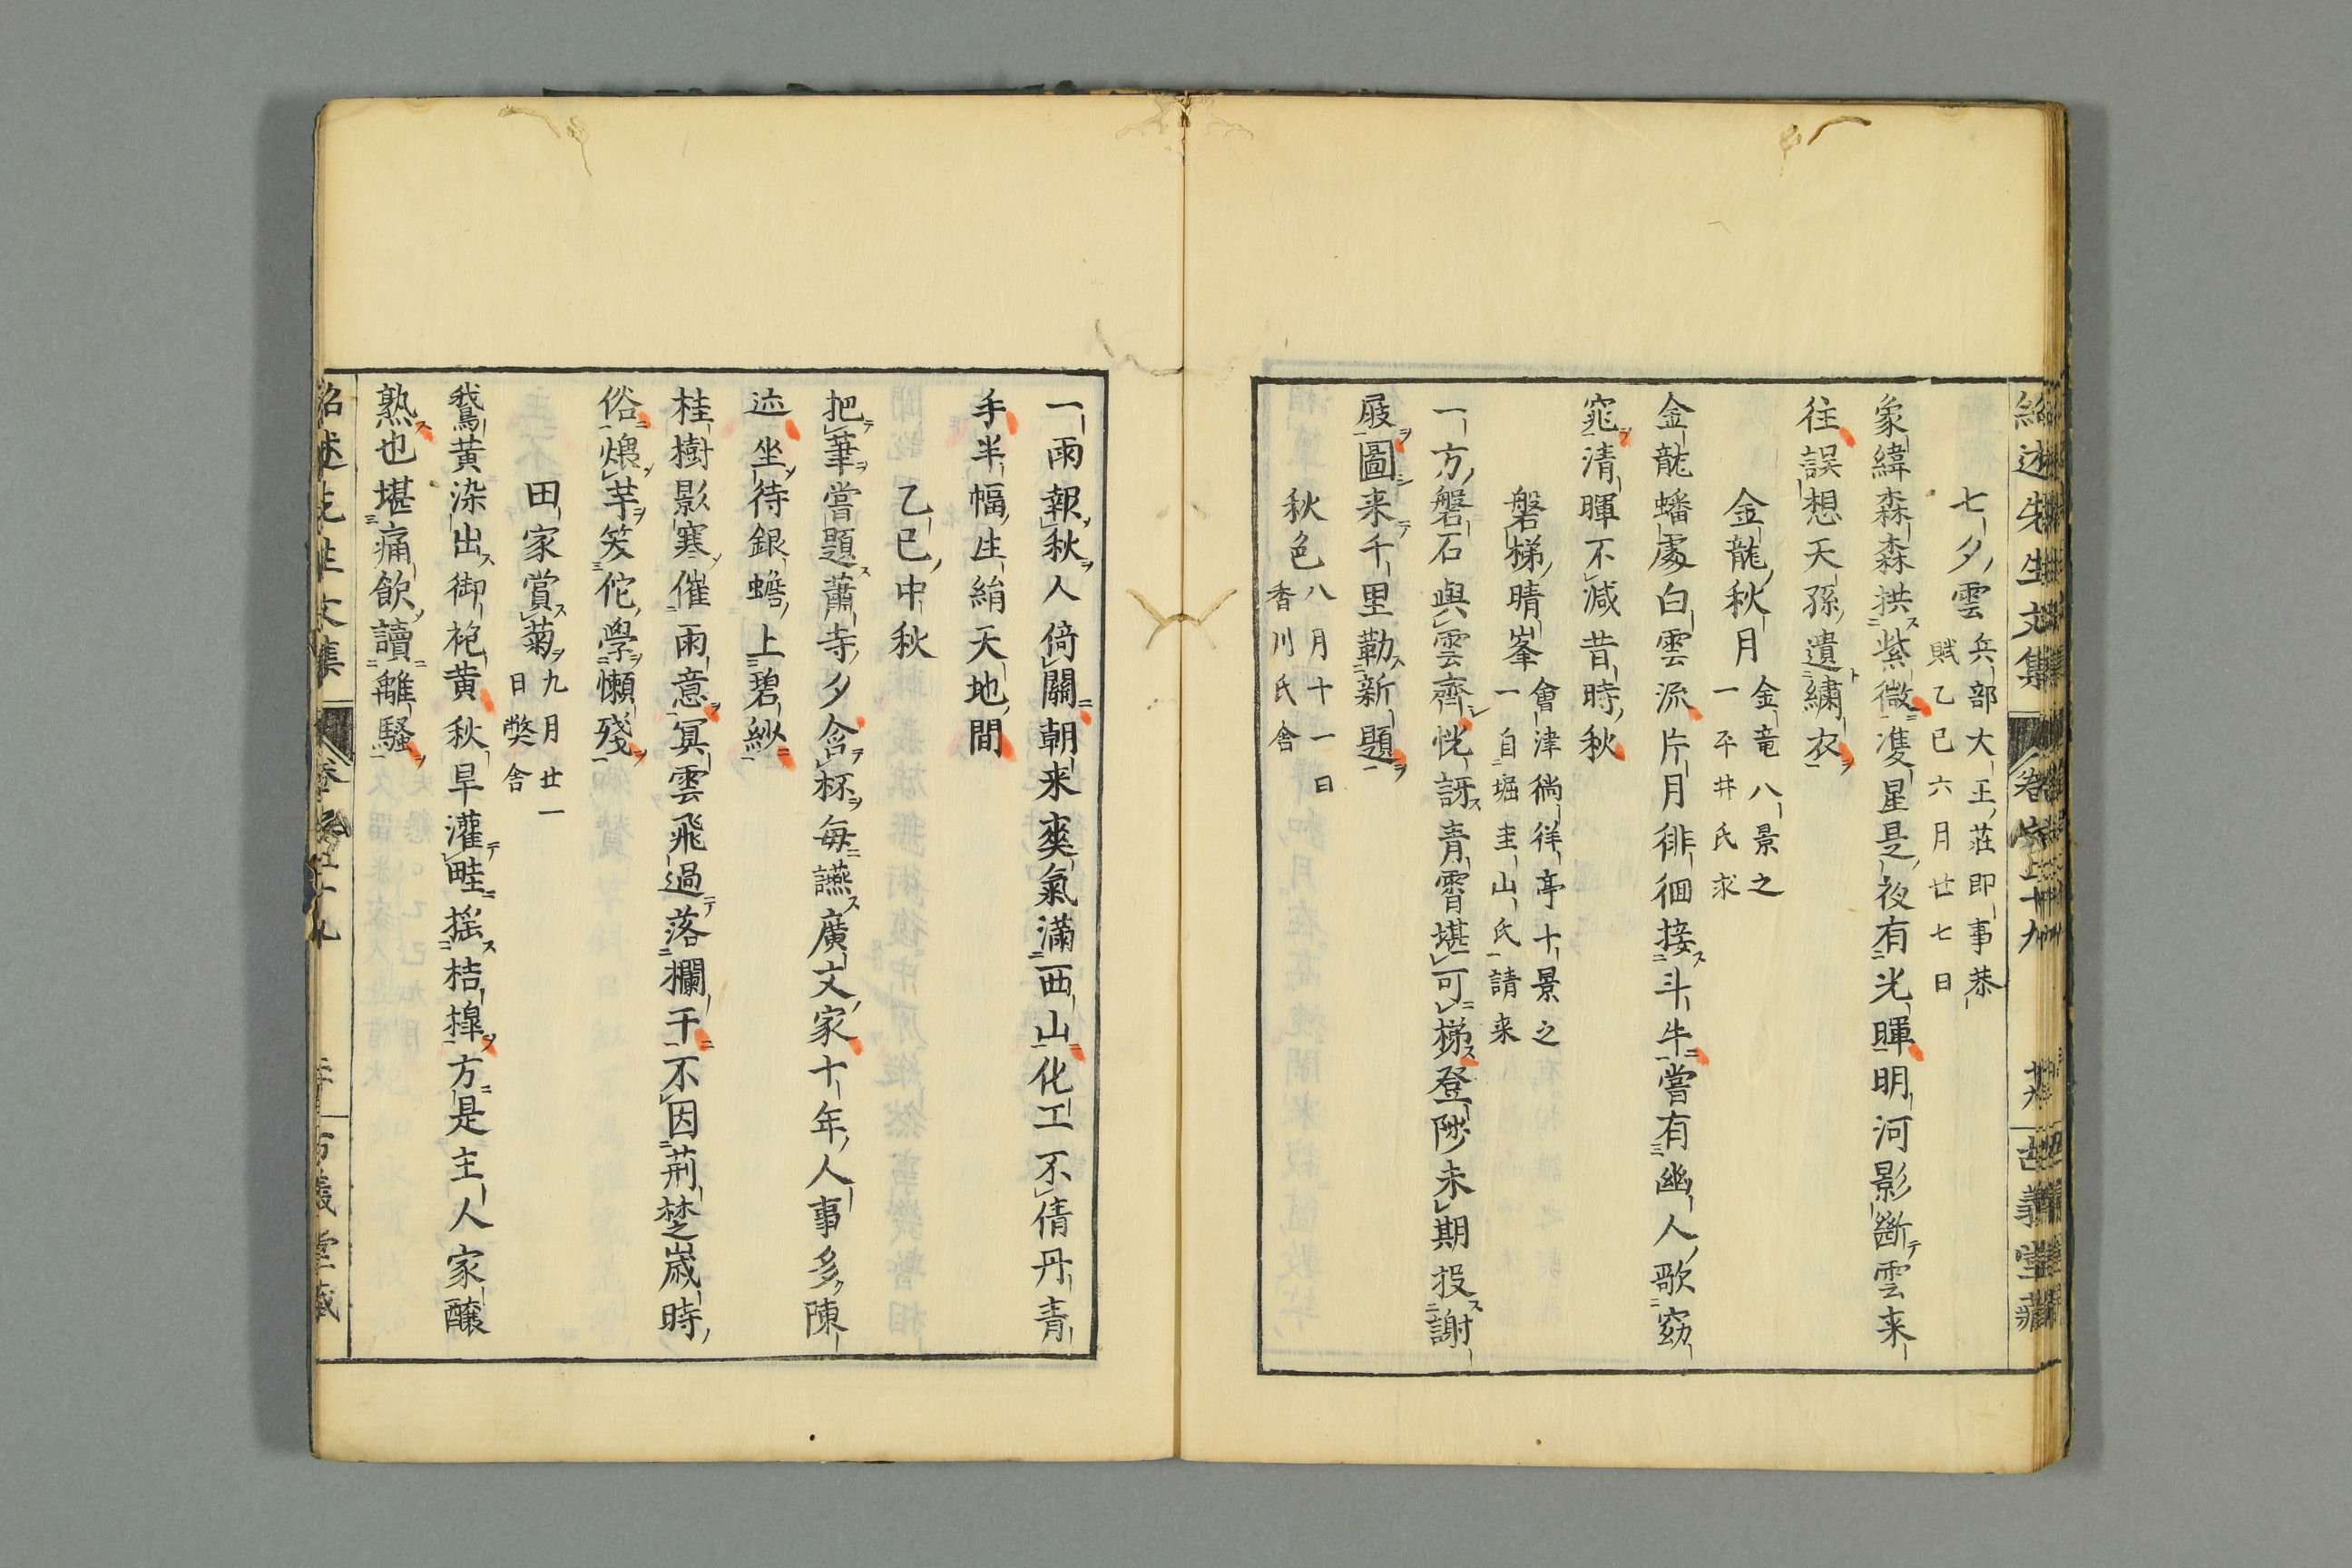 紹述先生文集 卷 十九 廿九 古義堂藏
七夕雲 兵部大王莊即事恭
賦乙巳六月廿七日
象緯森森拱紫微隻星是夜有光暉明河影斷雲来
往誤想天孫遺繍衣
金龍秋月 金竜八景之
一平井氏求
金龍蟠處白雲流片月徘徊接斗牛嘗有幽人歌窈
窕清暉不減昔時秋
磐梯晴峯 會津徜徉亭十景之
一自堀圭山氏請来
一方磐石與雲齊恍訝青霄堪可梯登陟未期投謝
屐圖来千里勒新題
秋色 八月十一日
香川氏舎
一雨報秋人倚闌朝来爽氣滿西山化工不倩丹青
手半幅生綃天地間
乙巳中秋
把筆嘗題蕭寺夕含杯毎讌廣文家十年人事多陳
迹坐待銀蟾上碧紗
桂樹影寒催雨意冥雲飛過落欄干不因荊楚歳時
俗煨芋笑佗學懶殘
田家賞菊 九月廿一
日弊舎
鵞黄染出御袍黄秋早灌畦揺桔槹方是主人家釀
熟也堪痛飲讀離騷
紹述先生文集 卷 十九 古義堂藏